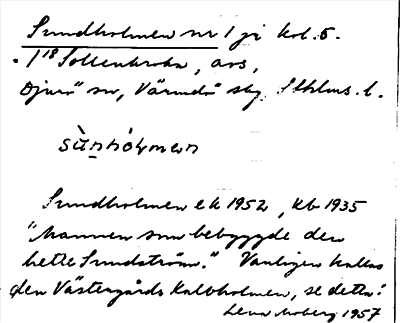 Sundholmen nr 1 ji kol. 5.
· 1¹⁸ Sollenkroka, avs,
Djurö sn, Värmdö skg. Sthlms. l.
sùn̲hólmen
Sundholmen ek 1952, kb 1935
"Mannen som bebyggde den
hette Sundström." Vanligen kallas
den Västergårds Kalvholmen, se detta!
Lena Moberg 1957